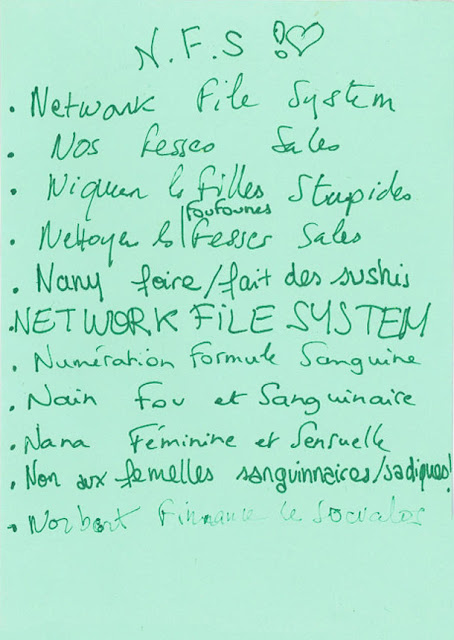 N.F.S !♡
• Network File System
• Nos fesses Sales
• Niquer les filles Stupides
foufounes
• Nettoyer les fesses Sales
• Nany faire/fait des sushis
• NETWORK FILE SYSTEM
• Numération Formule Sanguine
• Nain Fou et Sanguinaire
• Nana Féminine et Sensuelle
• Non aux femelles sanguinnaires/sadiques!
• Norbert Finance le